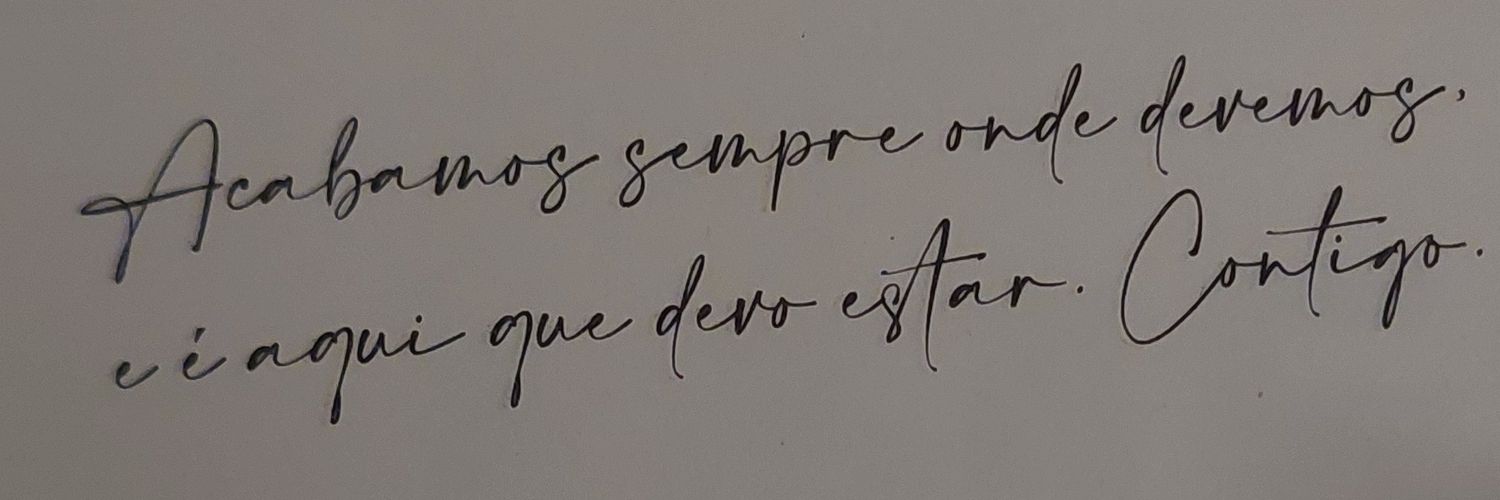 Acabamos sempre onde devemos,
e é aqui que devo estar. Contigo.